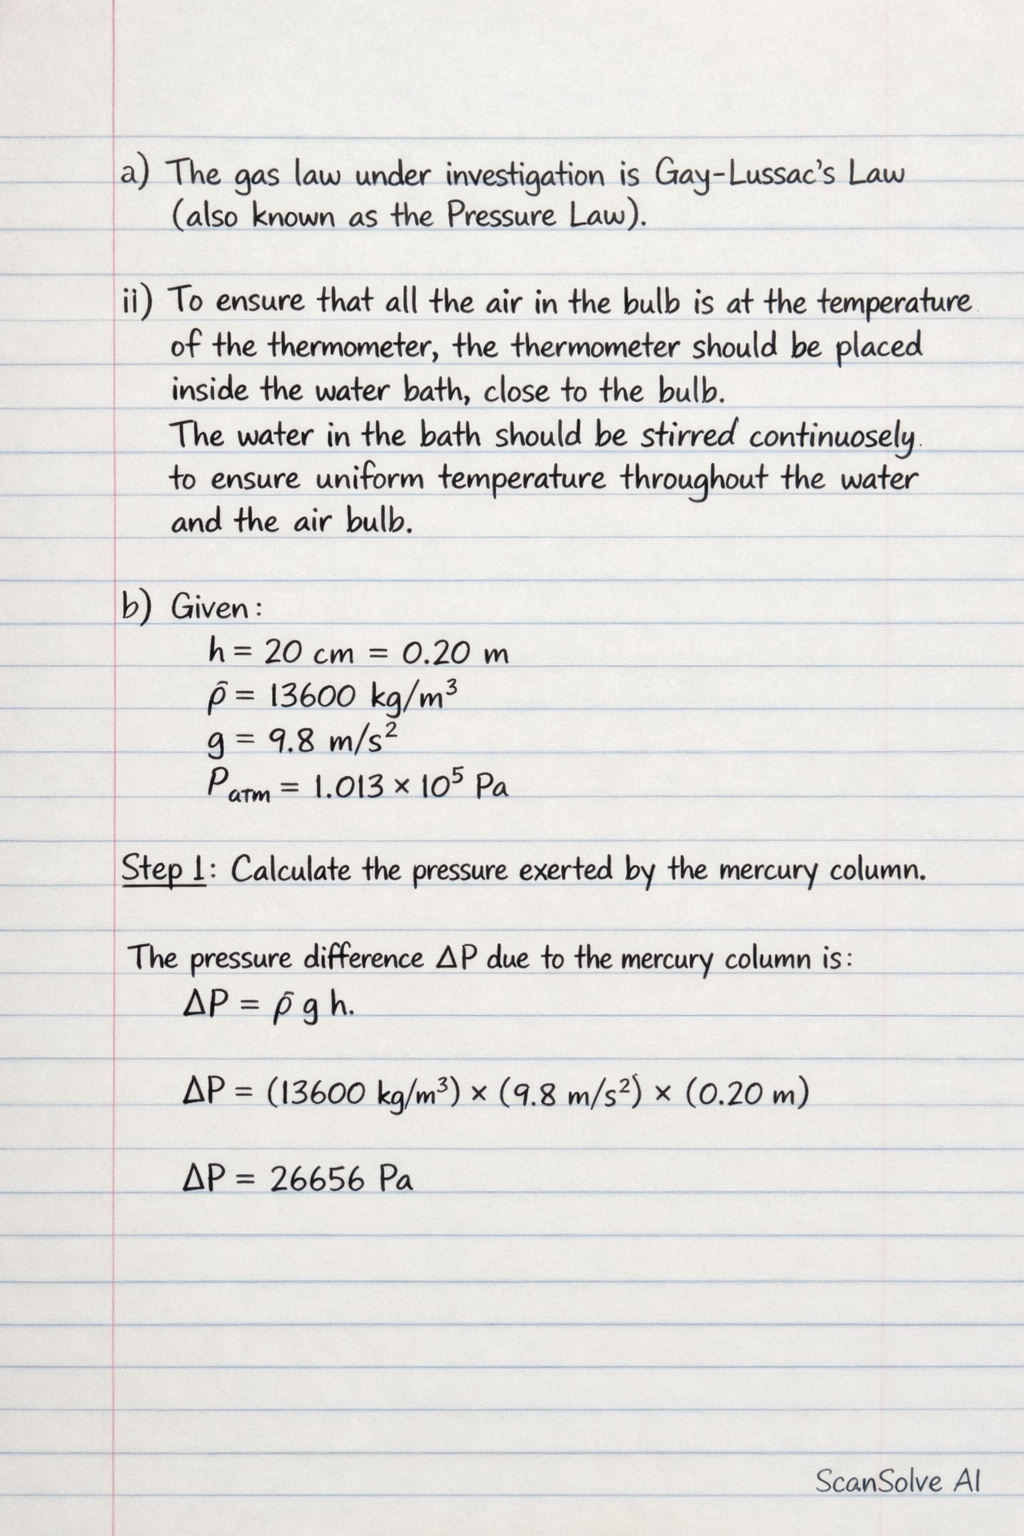 a) The gas law under investigation is Gay-Lussac's Law
(also known as the Pressure Law).
ii) To ensure that all the air in the bulb is at the temperature
of the thermometer, the thermometer should be placed
inside the water bath, close to the bulb.
The water in the bath should be stirred continuosely.
to ensure uniform temperature throughout the water
and the air bulb.
b) Given:
h = 20 cm = 0.20 m
ρ̄ = 13600 kg/m³
g = 9.8 m/s²
Patm = 1.013 × 10⁵ Pa
Step 1: Calculate the pressure exerted by the mercury column.
The pressure difference ΔP due to the mercury column is:
ΔP = ρ̄ g h.
ΔP = (13600 kg/m³) × (9.8 m/s²) × (0.20 m)
ΔP = 26656 Pa
ScanSolve AI